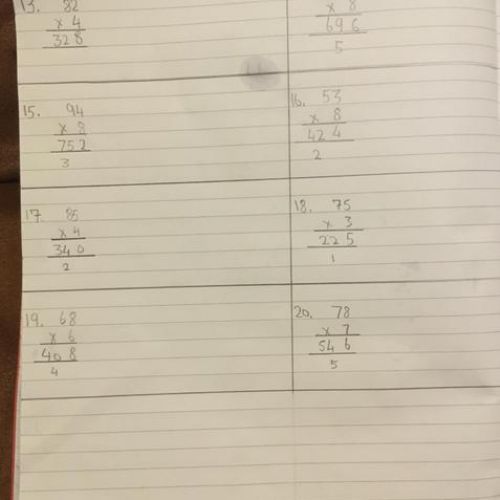 13. 82
x 4
328
x 8
696
5
15. 94
x 8
752
3
16. 53
x 8
424
2
17. 85
x 4
340
2
18. 75
x 3
225
1
19. 68
x 6
408
4
20. 78
x 7
546
5